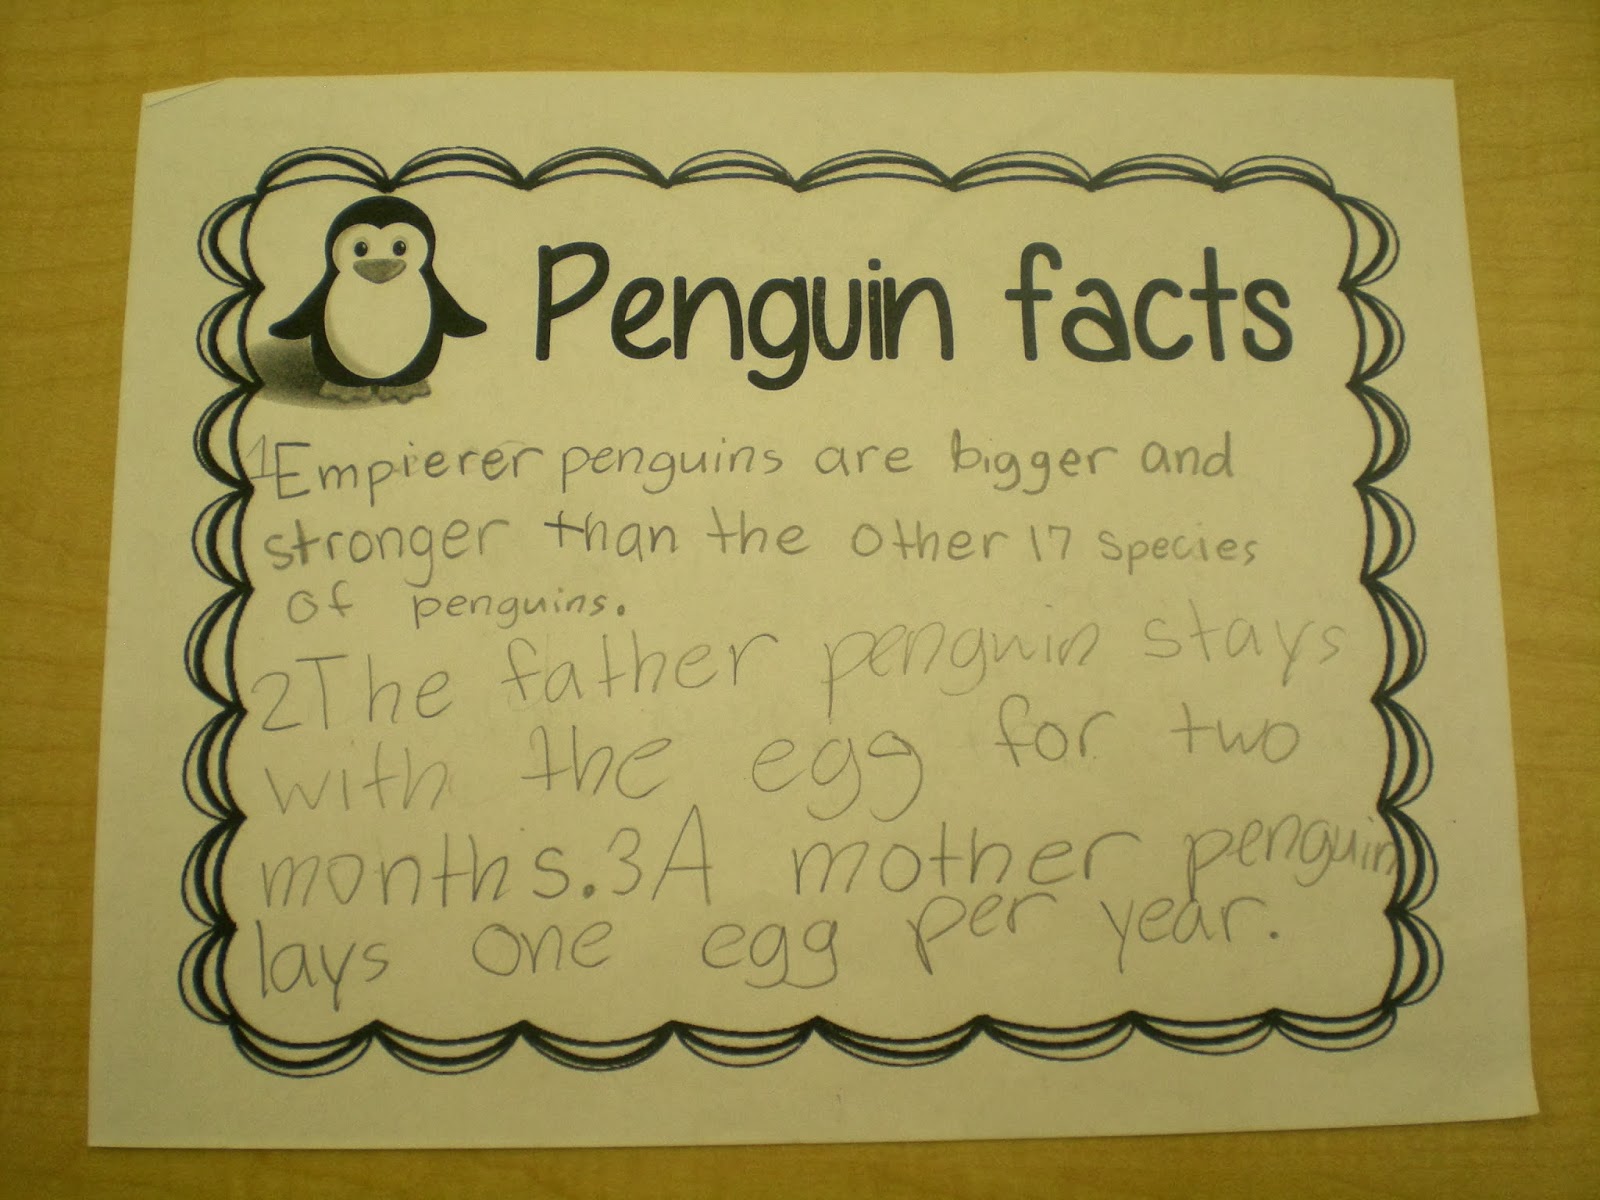 Penguin facts
1Empierer penguins are bigger and
stronger than the other 17 species
of penguins.
2The father penguin stays
with the egg for two
months.3A mother penguin
lays one egg per year.